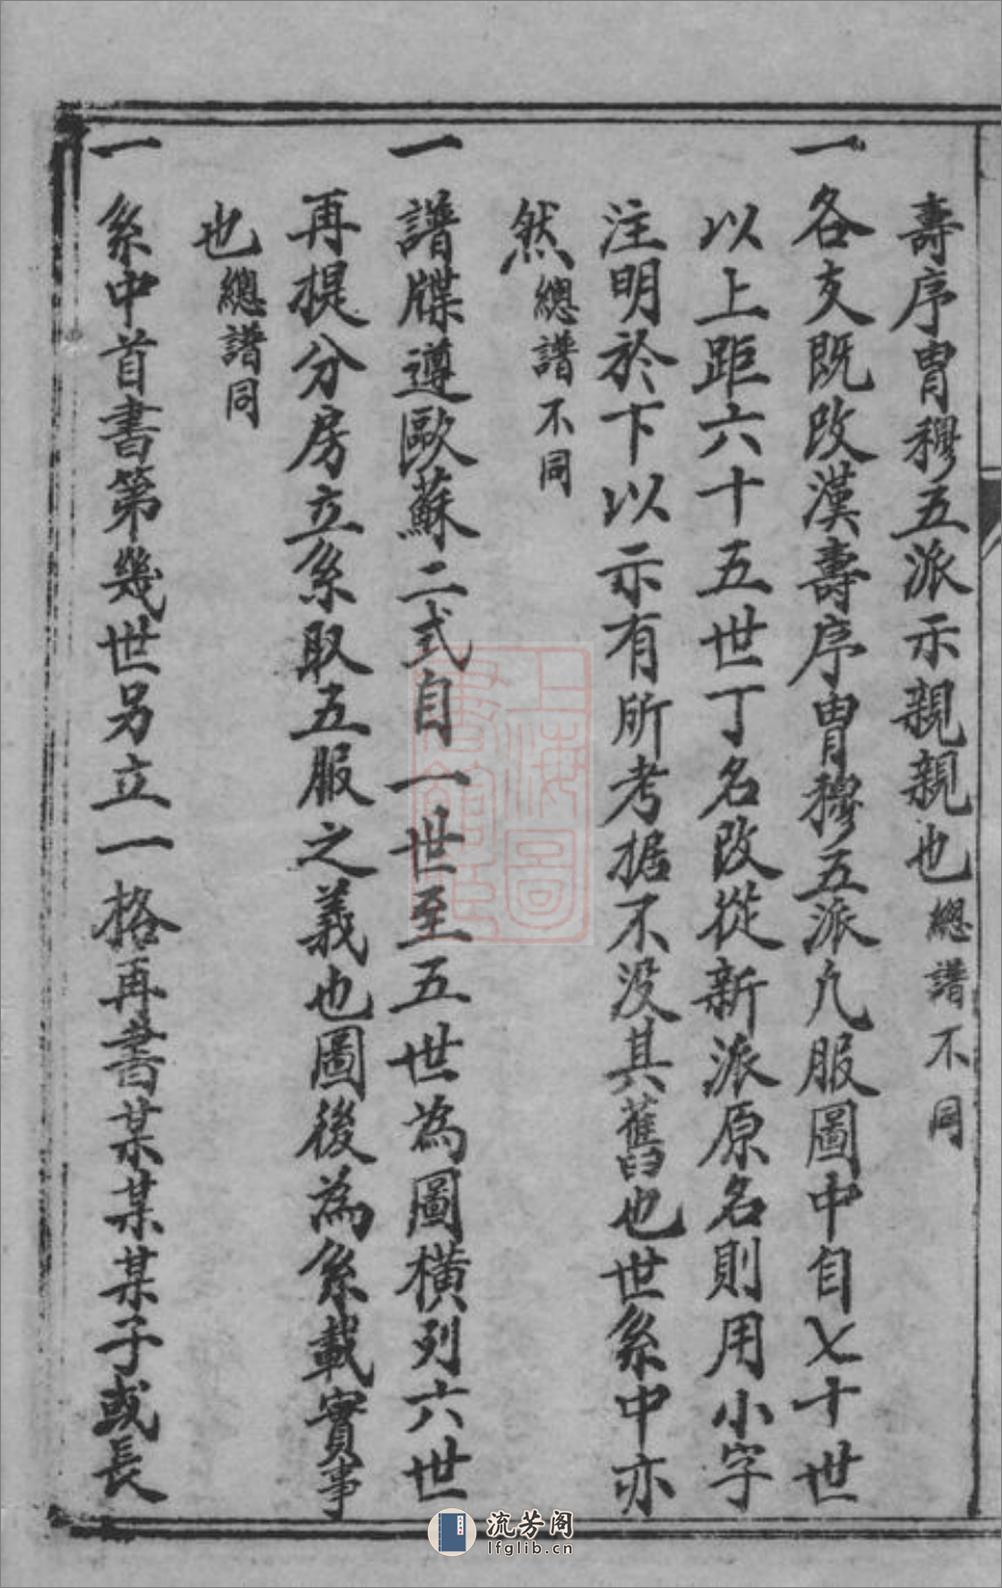 壽序胄穆五派示親親也總譜不同
一各支既改漢壽序胄穆五派凢服圖中自七十世
以上距六十五世丁名改從新派原名則用小字
注明於下以示有所考据不没其舊也世系中亦
然總譜不同
一譜牒遵歐蘇二式自一世至五世為圖横列六世
再提分房立系取五服之義也圖後為系載實事
也總譜同
一系中首書第幾世另立一格再書某某某子或長
上海圖書館藏
流芳阁
lfglib.cn